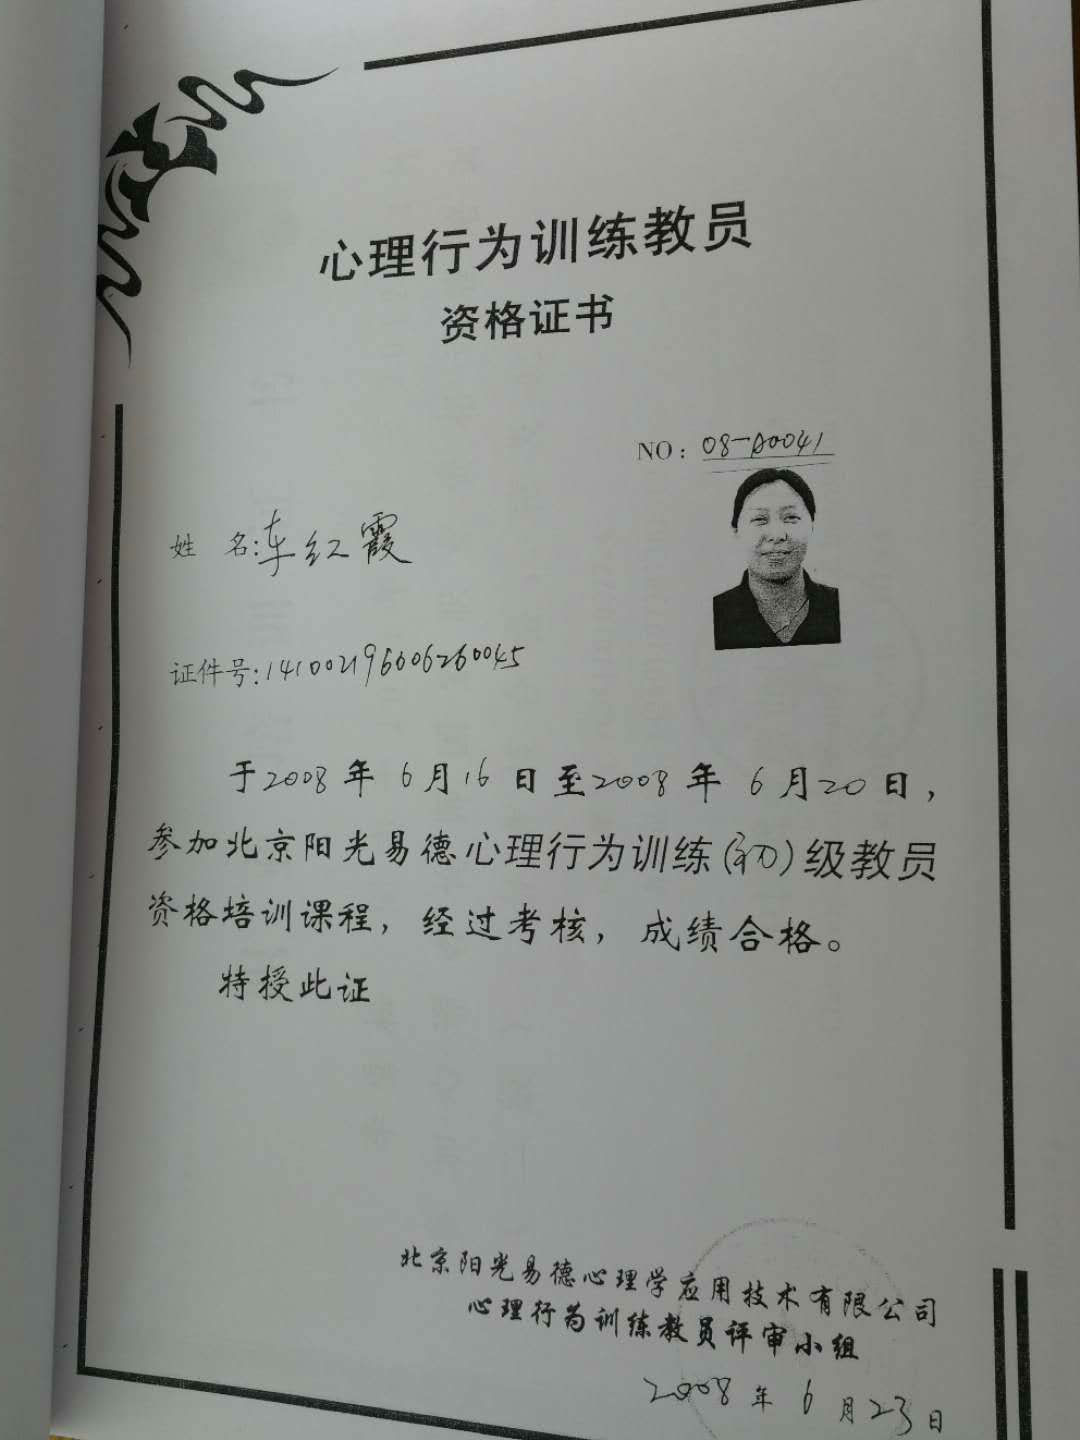 心理行为训练教员
资格证书
NO：08-A0041
姓 名:车红霞
证件号:141002196606260045
于2008年6月16日至2008年6月20日，
参加北京阳光易德心理行为训练(初)级教员
资格培训课程，经过考核，成绩合格。
特授此证
北京阳光易德心理学应用技术有限公司
心理行为训练教员评审小组
2008年6月23日